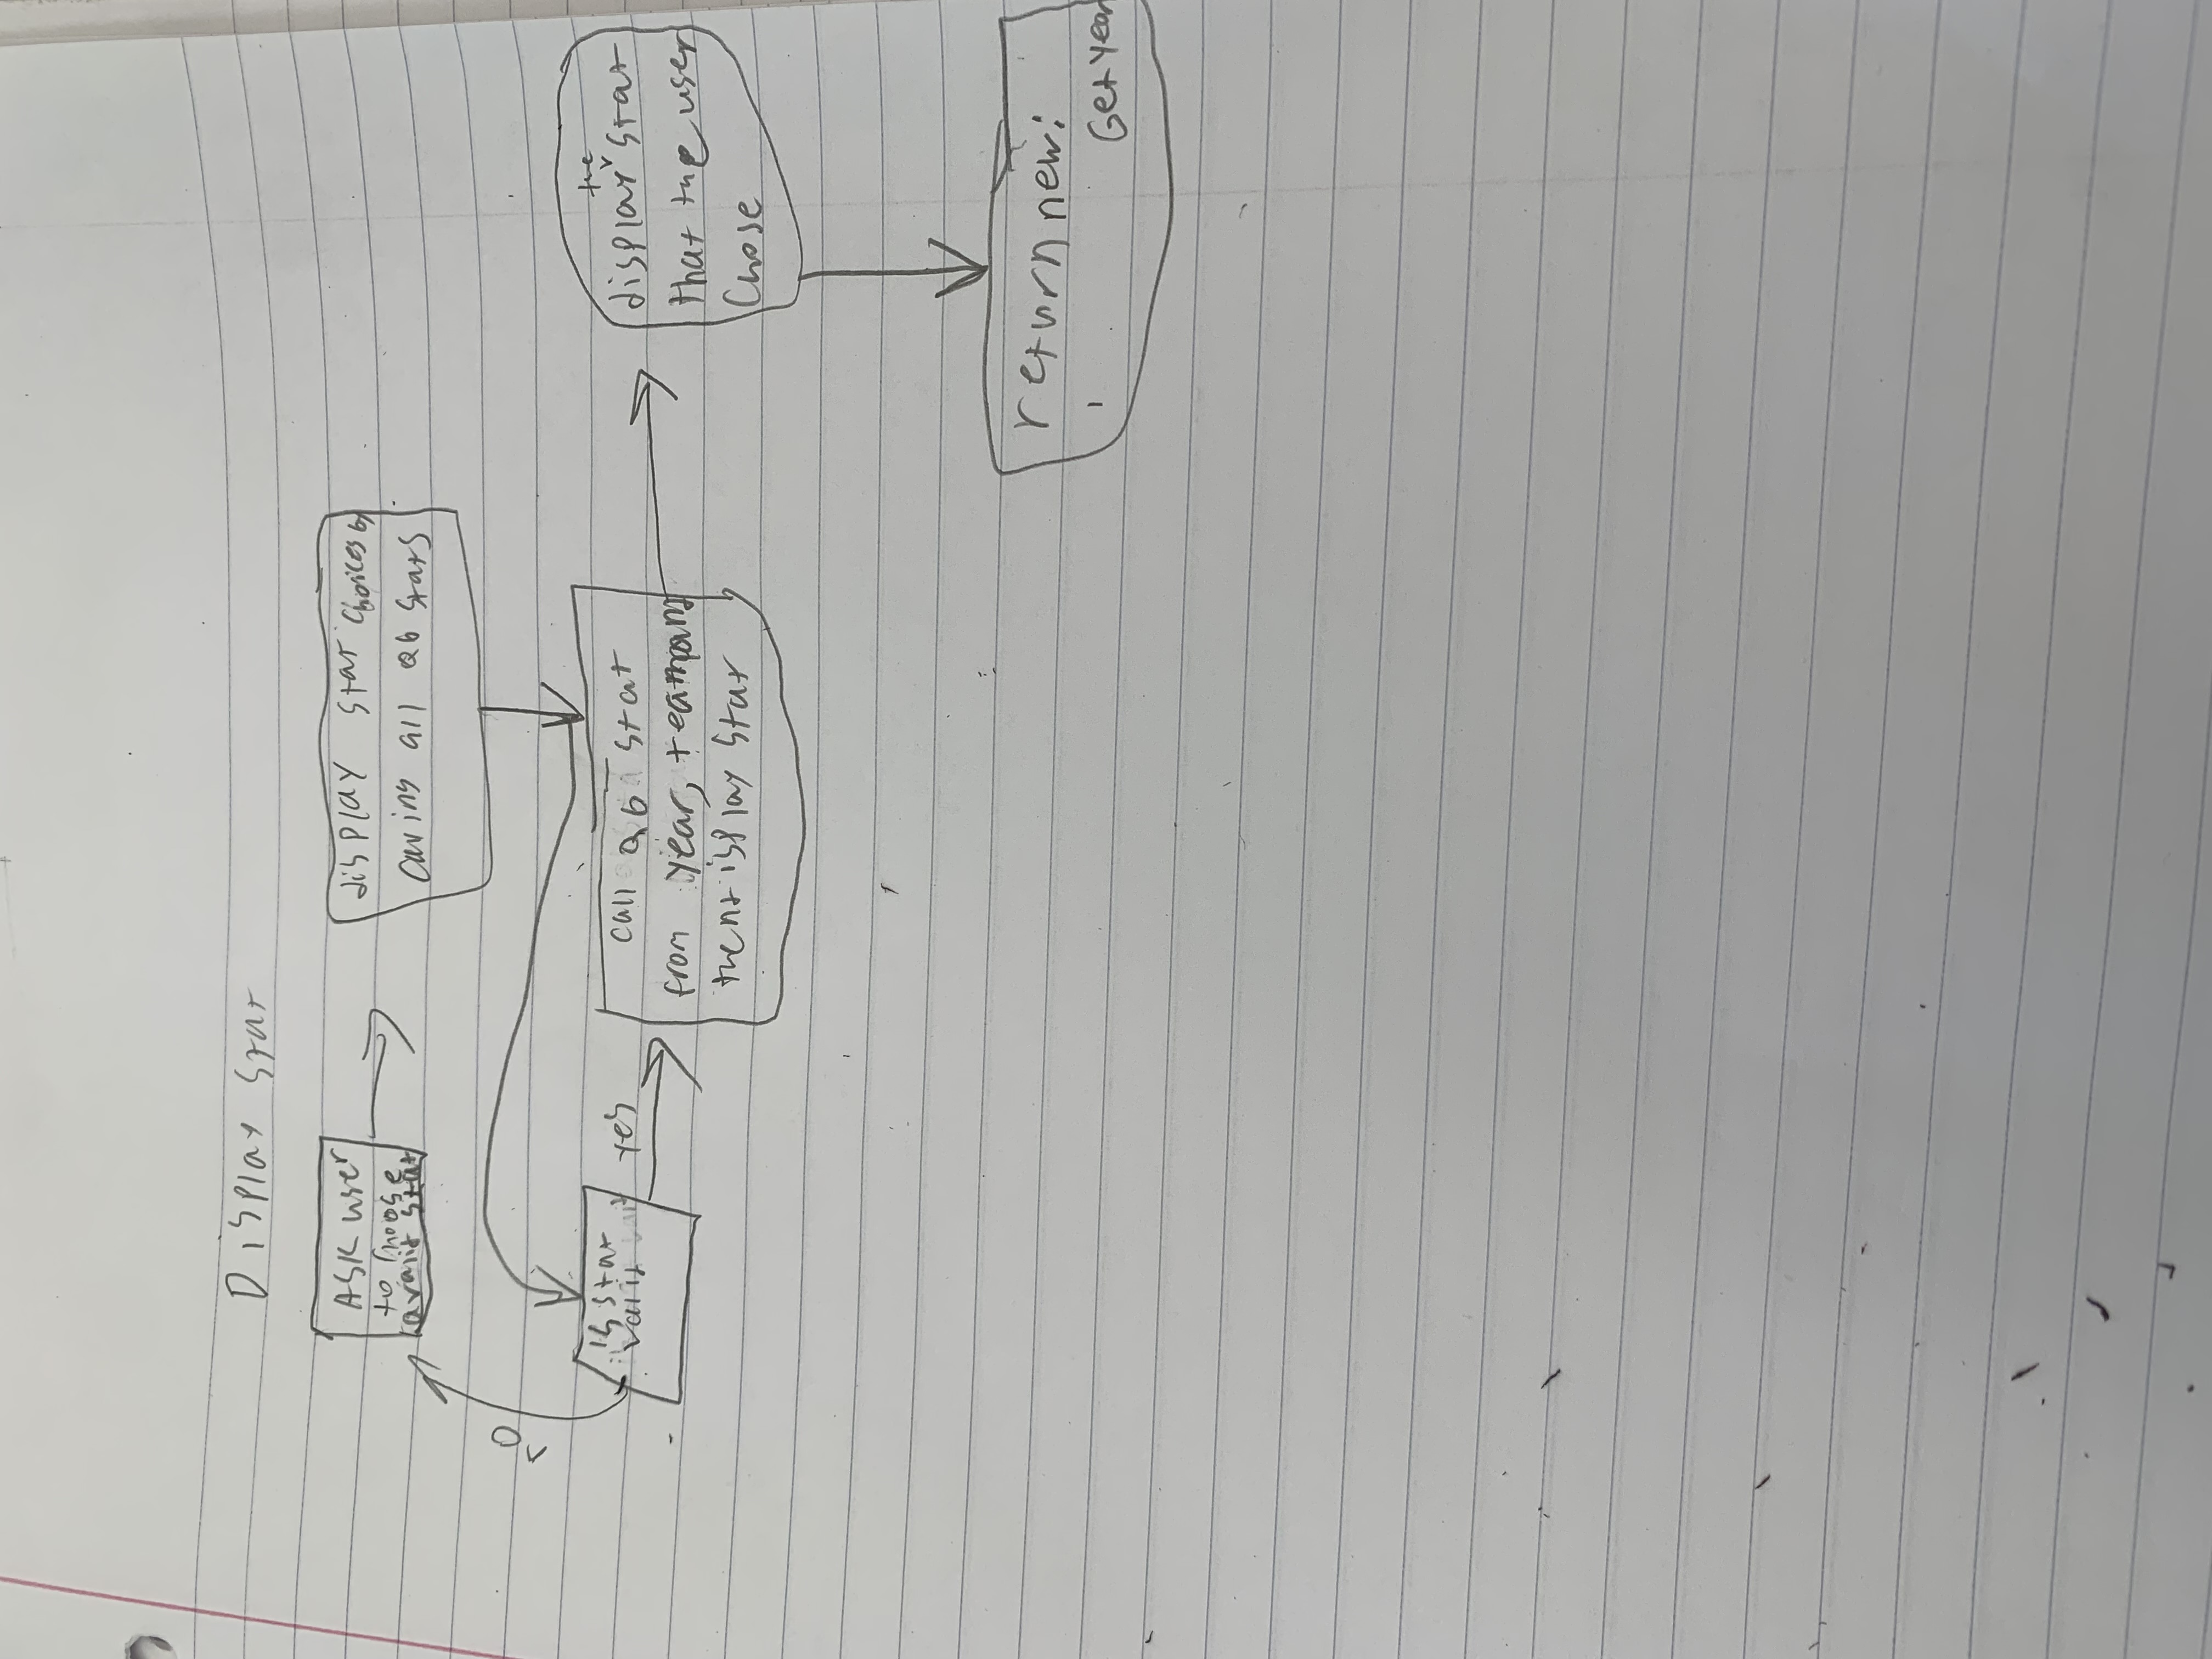 Display stat
ASK user
to choose
a valid stat
display stat choices by
all QB stats
no
is stat
valid
yes
call QB stat
from year, team and
then display stat
the
display stat
that the user
Chose
return new:
Get year